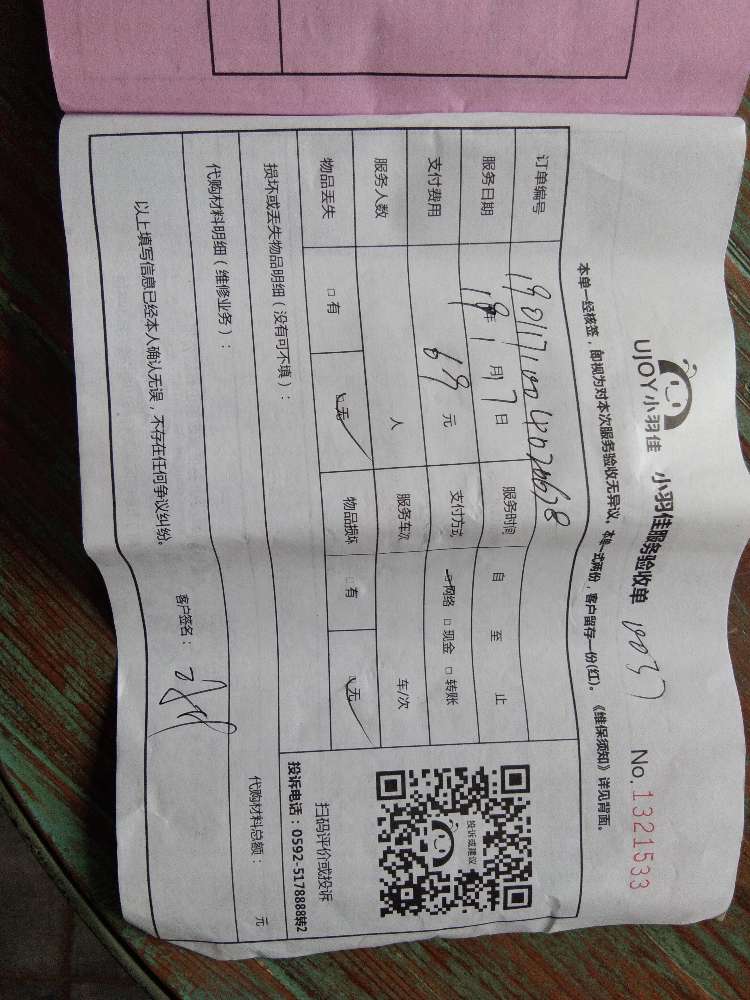 UJOY小羽佳 小羽佳服务验收单 10037 No.1321533
本单一经核签，即视为对本次服务验收无异议，本单一式两份，客户留存一份(红)。《维保须知》详见背面。
订单编号
服务日期 19年 1 月 17 日 服务时间 自 至 止
支付费用 69 元 支付方式 □网络 □现金 □转账
服务人数 人 服务车次 车/次
物品丢失 □有 □无 物品损坏 □有 □无
损坏或丢失物品明细（没有可不填）：
代购材料明细（维修业务）：
代购材料总额： 元
以上填写信息已经本人确认无误，不存在任何争议纠纷。
客户签名：
投诉或建议
扫码评价或投诉
投诉电话：0592-5178888转2